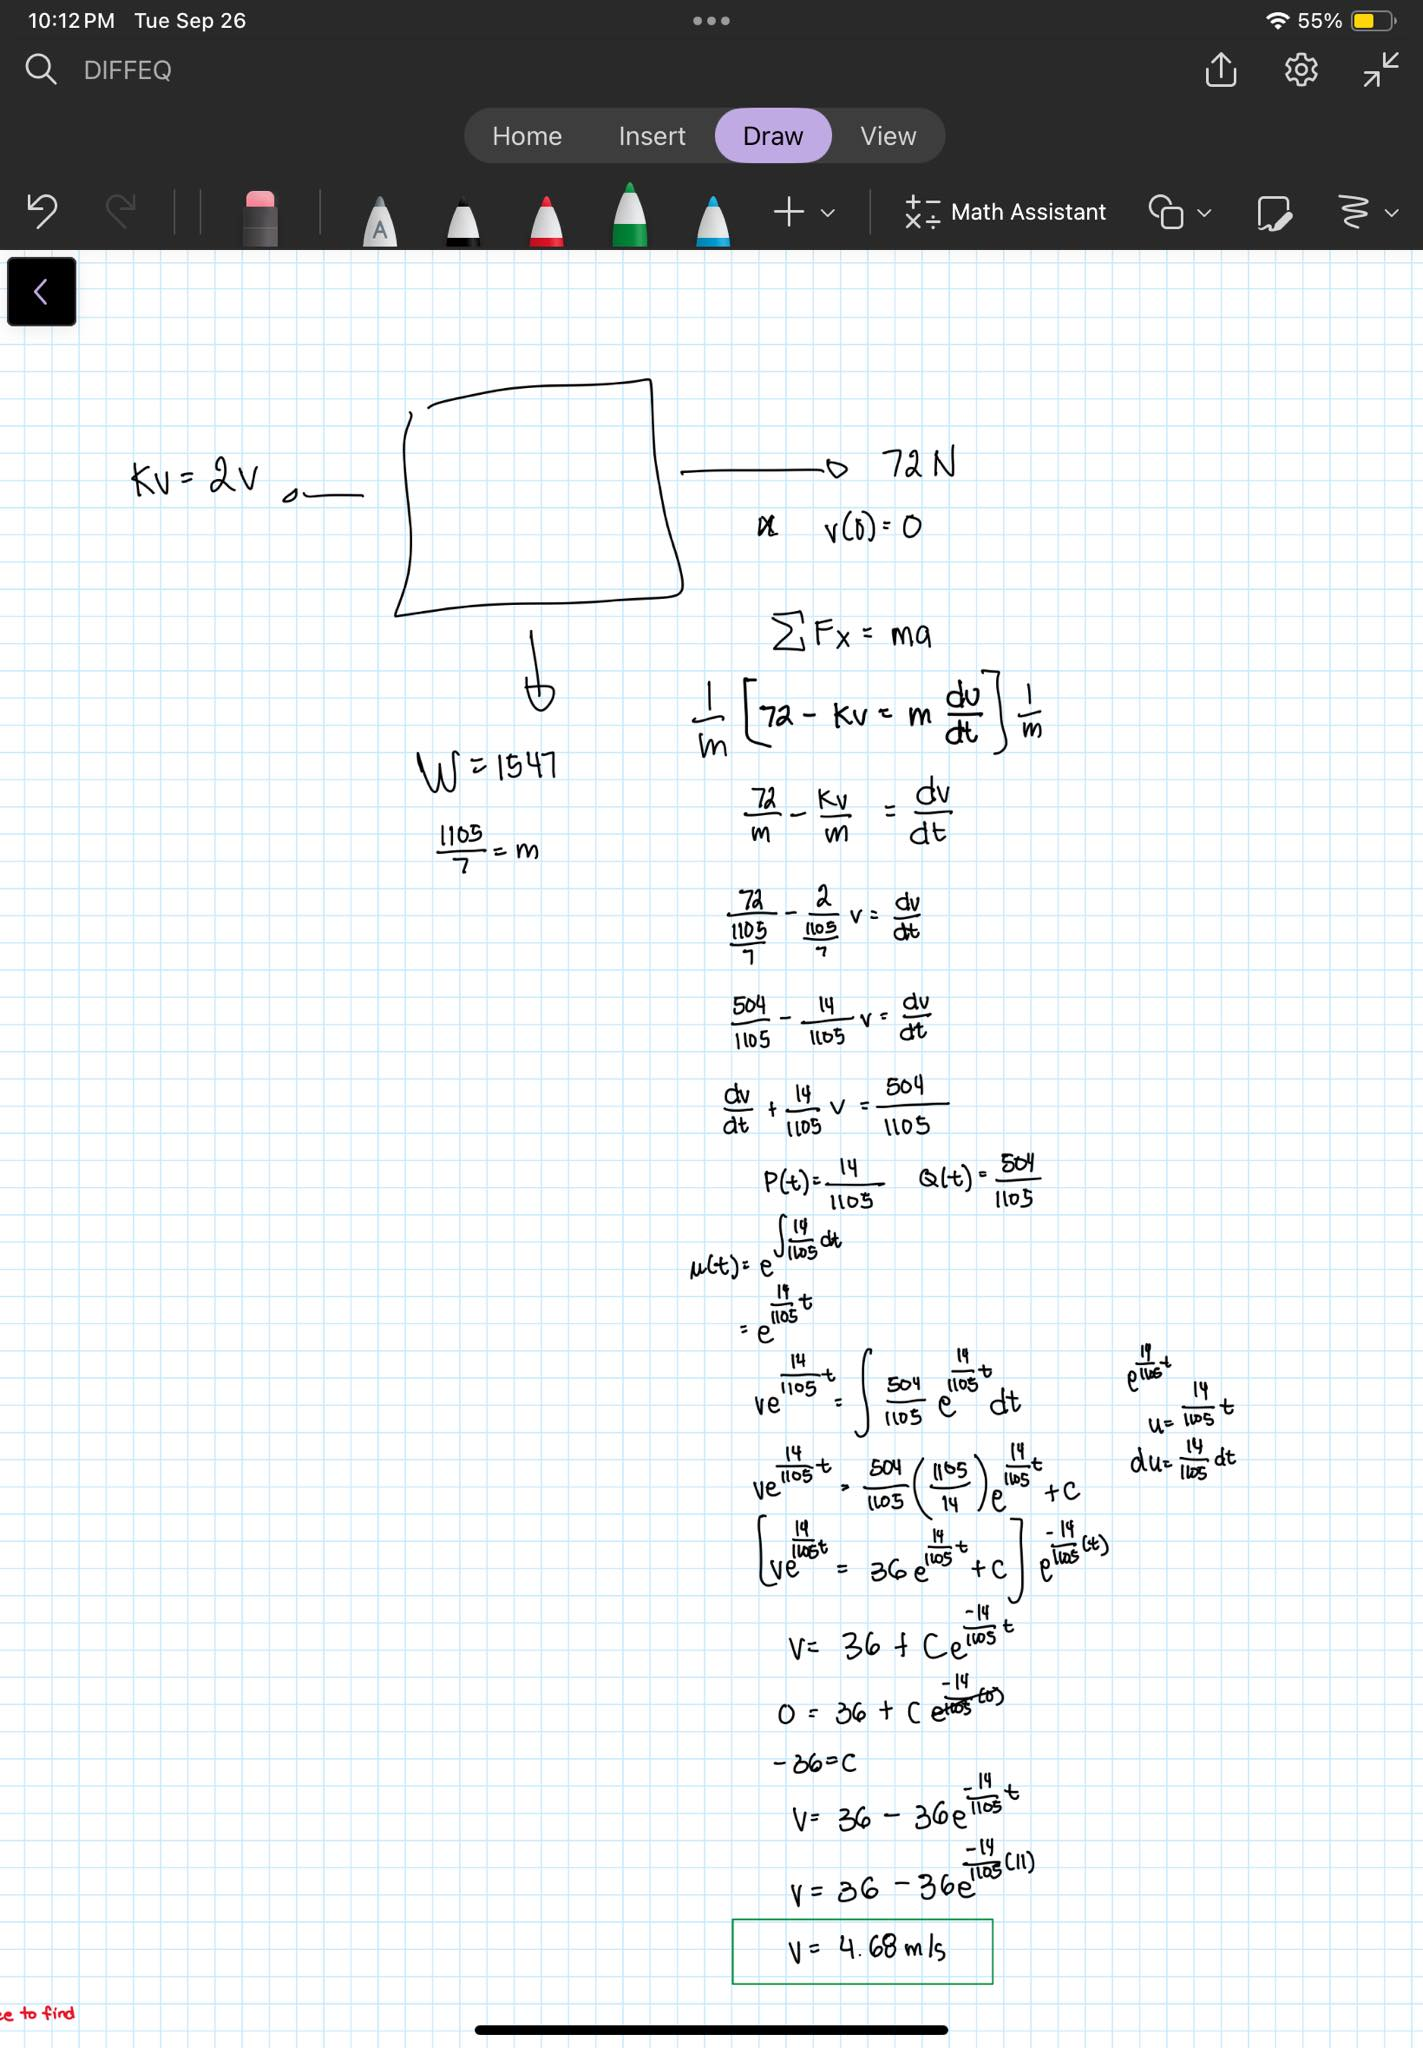 10:12 PM Tue Sep 26
55%
DIFFEQ
Home Insert Draw View
A
Math Assistant
Kv = 2v
72 N
v(0) = 0
W = 1547
1105/7 = m
∑Fx = ma
1/m [72 - Kv = m dv/dt] 1/m
72/m - Kv/m = dv/dt
72/(1105/7) - 2/(1105/7) v = dv/dt
504/1105 - 14/1105 v = dv/dt
dv/dt + 14/1105 v = 504/1105
P(t) = 14/1105 Q(t) = 504/1105
μ(t) = e^(∫14/1105 dt)
= e^(14/1105 t)
ve^(14/1105 t) = ∫ 504/1105 e^(14/1105 t) dt
e^(14/1105 t)
u = 14/1105 t
du = 14/1105 dt
ve^(14/1105 t) = 504/1105 (1105/14) e^(14/1105 t) + C
[ve^(14/1105 t) = 36e^(14/1105 t) + C] e^(-14/1105 (t))
V = 36 + Ce^(-14/1105 t)
0 = 36 + C e^(-14/1105 (0))
-36 = C
V = 36 - 36e^(-14/1105 t)
V = 36 - 36e^(-14/1105 (11))
V = 4.68 m/s
to find